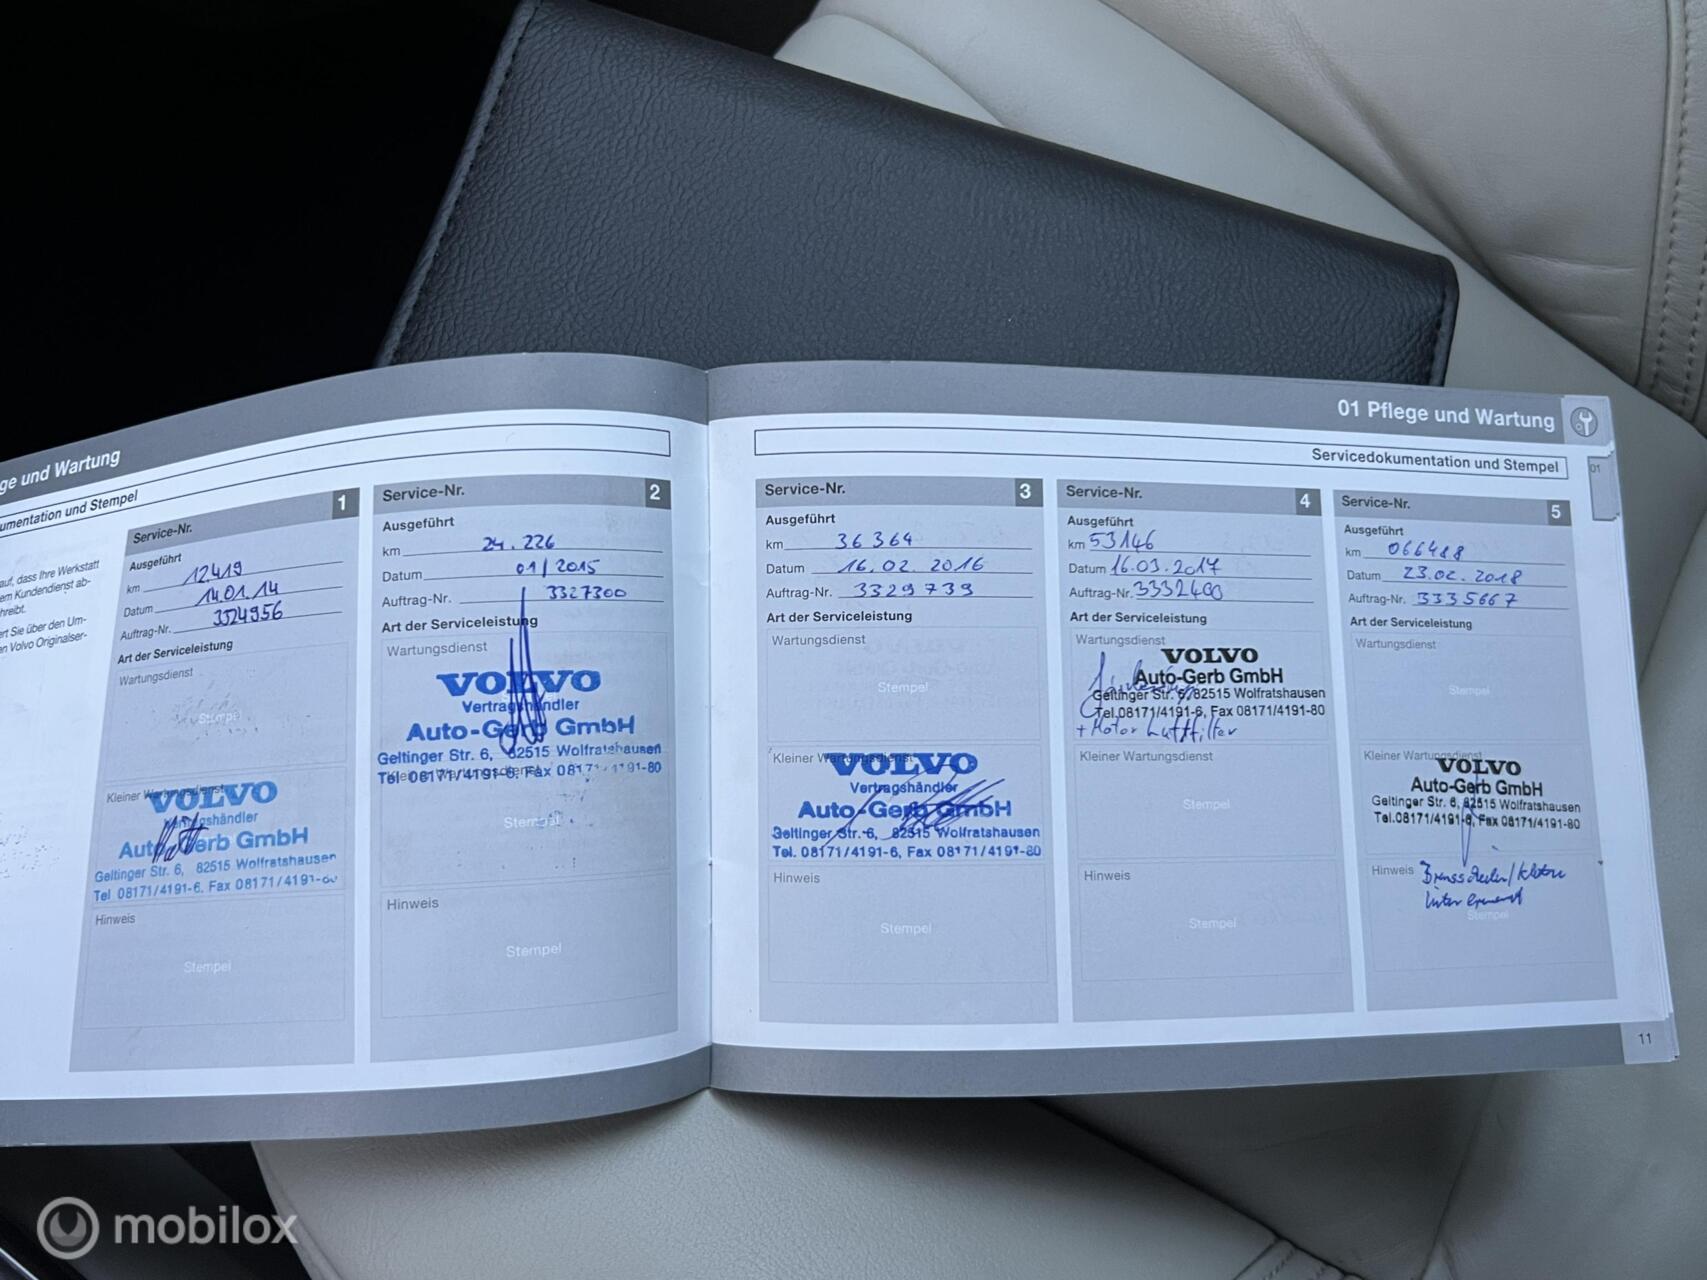 ge und Wartung
umentation und Stempel
auf, dass Ihre Werkstatt
em Kundendienst ab-
hreibt.
ert Sie über den Um-
en Volvo Originalser-
Service-Nr. 1
Ausgeführt
km 12419
Datum 14.01.14
Auftrag-Nr. 3324956
Art der Serviceleistung
Wartungsdienst
Stempel
Kleiner Wartungsdienst
VOLVO
Vertragshändler
Auto-Gerb GmbH
Geltinger Str. 6, 82515 Wolfratshausen
Tel 08171/4191-6, Fax 08171/4191-80
Hinweis
Stempel
Service-Nr. 2
Ausgeführt
km 24.226
Datum 01/2015
Auftrag-Nr. 3327300
Art der Serviceleistung
Wartungsdienst
VOLVO
Vertragshändler
Auto-Gerb GmbH
Geltinger Str. 6, 82515 Wolfratshausen
Tel 08171/4191-6, Fax 08171/4191-80
Kleiner Wartungsdienst
Stempel
Hinweis
Stempel
01 Pflege und Wartung
Servicedokumentation und Stempel
01
Service-Nr. 3
Ausgeführt
km 36364
Datum 16.02.2016
Auftrag-Nr. 3329739
Art der Serviceleistung
Wartungsdienst
Stempel
Kleiner Wartungsdienst
VOLVO
Vertragshändler
Auto-Gerb GmbH
Geltinger Str. 6, 82515 Wolfratshausen
Tel. 08171/4191-6, Fax 08171/4191-80
Hinweis
Stempel
Service-Nr. 4
Ausgeführt
km 53146
Datum 16.03.2017
Auftrag-Nr. 3332400
Art der Serviceleistung
Wartungsdienst
VOLVO
Auto-Gerb GmbH
Geltinger Str. 6, 82515 Wolfratshausen
Tel.08171/4191-6, Fax 08171/4191-80
+ Motor Luftfilter
Kleiner Wartungsdienst
Stempel
Hinweis
Stempel
Service-Nr. 5
Ausgeführt
km 066488
Datum 23.02.2018
Auftrag-Nr. 3335667
Art der Serviceleistung
Wartungsdienst
Stempel
Kleiner Wartungsdienst
VOLVO
Auto-Gerb GmbH
Geltinger Str. 6, 82515 Wolfratshausen
Tel.08171/4191-6, Fax 08171/4191-80
Hinweis
Stempel
11
mobilox